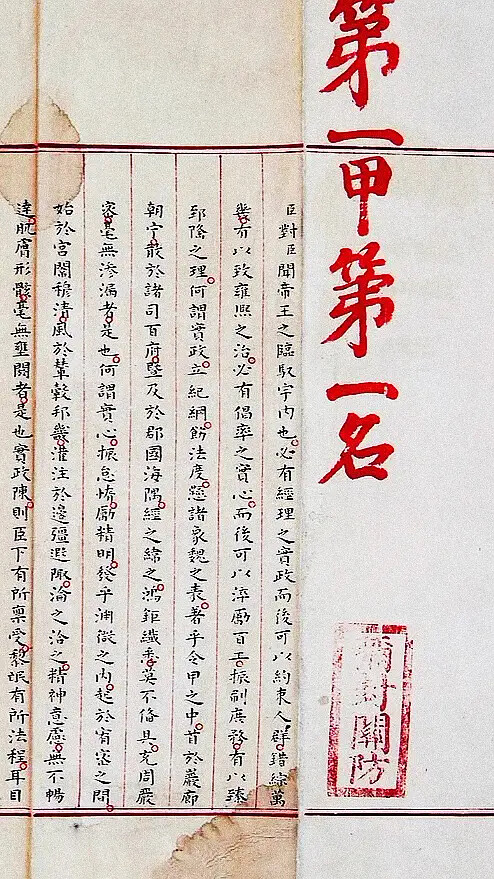 第一甲第一名
彌封關防
臣對臣聞帝王之臨馭宇內也必有經理之實政而後可以約束人群錯綜萬
幾有以致雍熙之治必有倡率之實心而後可以淬勵百工振刷庶務有以臻
郅隆之理何謂實政立紀綱飭法度懸諸象魏之表著乎令甲之中首於巖廊
朝宁散於諸司百府暨及於郡國海隅經之緯之鴻鉅纖悉莫不備具充周嚴
密毫無滲漏者是也何謂實心振怠惰勵精明發乎淵微之內起於宥密之間
始於宮闈穆清風於輦轂邦畿灌注於邊疆遐陬淪之洽之精神意慮無不暢
達肌膚形骸毫無壅閼者是也實政陳則臣下有所稟受黎氓有所法程耳目